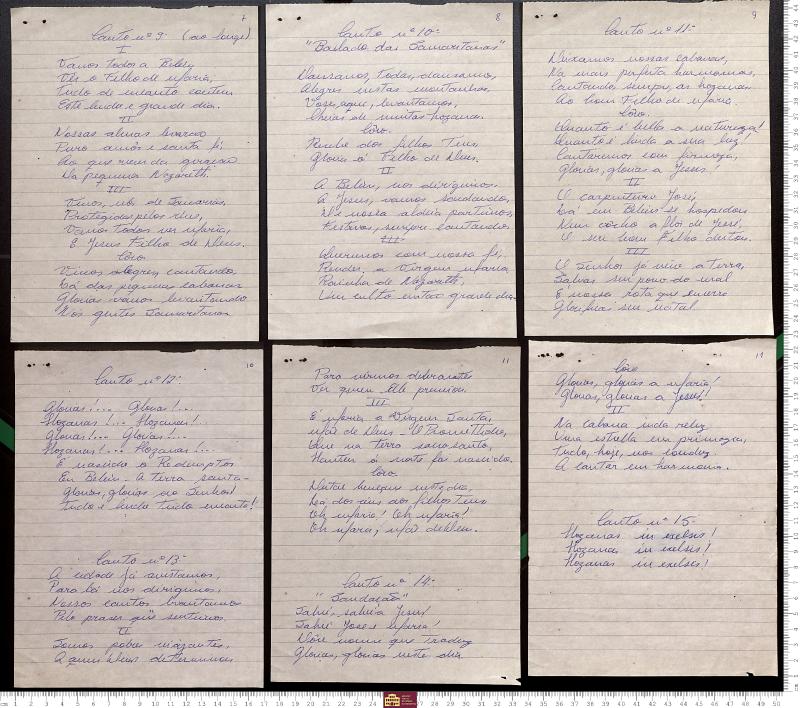 7
Canto nº 9: (ao longe)
I
Vamos todos a Belém,
Ver o Filho de Maria,
Tudo de encanto contem
Este lindo e grande dia.
II
Nossas almas levarão
Puro amôr e santa fé,
Ao que vem da
Na pequena Nazareth.
III
Vimos, nós de Samaria,
Protegidos pelos céus,
Vamos todos ver Maria,
E Jesus Filho de Deus.
Côro
Vimos alegres, cantando,
Cá das pequenas cabanas
Glorias vamos levantando
Nós gentes Samaritanas.
8
Canto nº 10-
"Bailado das Samaritanas"
Dansamos, todas, dansamos,
Alegres nestas montanhas,
Vozes, aqui, levantamos,
Cheias de muitas hozanas.
Côro.
Recebe dos filhos Teus
Gloria ó Filho de Deus.
II
A Belém, nos dirigimos
A Jesus, vamos saudando,
De nossa aldeia partimos,
Festivas, sempre cantando.
III
Queremos com nossa fé,
Render, a Virgem Maria,
Rainha de Nazareth,
Um culto neste grande dia.
9
Canto nº 11-
Deixamos nossas cabanas,
Na mais perfeita harmonia,
Cantando sempre, as hozanas
Ao bom Filho de Maria.
Côro.
Quanto é bella a natureza!
Quanto é linda a sua luz!
Cantaremos com firmeza,
Glorias, glorias a Jesus!
II
O carpinteiro José,
Lá em Belém se hospedou
Num cocho a flor de Jessé,
O seu bom Filho deitou.
III
O Senhor já veio a terra,
Salvar seu povo do mal
É nossa rota que encerra
Glorias seu natal.
10
Canto nº 12-
Glorias!... Glorias!...
Hozanas!... Hozanas!...
Glorias!... Glorias!...
Hozanas!... Hozanas!...
É nascido o Redemptor
Em Belém - A terra santa -
Glorias, glorias ao Senhor!
Tudo é lindo tudo encanta!
Canto nº 13-
A cidade já avistamos,
Para lá nos dirigimos,
Nossos cantos levantamos
Pelo prazer que sentimos.
II
Somos pobres viajantes,
A quem Deus determinou
11
Para virmos
Ver quem Elle premiou.
III
É Maria a Virgem Santa,
Mãe de Deus, O Promettido,
Veio na terra sacrosanta,
Hontem á noite foi nascido.
Côro
Natal benigno neste dia,
Lá dos céus aos filhos teus
Oh Maria! Oh Maria!
Oh Maria, Mãe de Deus.
Canto nº 14-
"Saudação"
Salvé, salvé a Jesus!
Salvé José e Maria!
Doce nome que traduz
Glorias, glorias neste dia.
11
Côro
Glorias, glorias a Maria!
Glorias, glorias a Jesus!
II
Na cabana inda reluz
Uma estrella em primazia,
Tudo, hoje, nos conduz
A cantar em harmonia.
Canto nº 15-
Hozanas in excelsis!
Hozanas in excelsis!
Hozanas in excelsis!